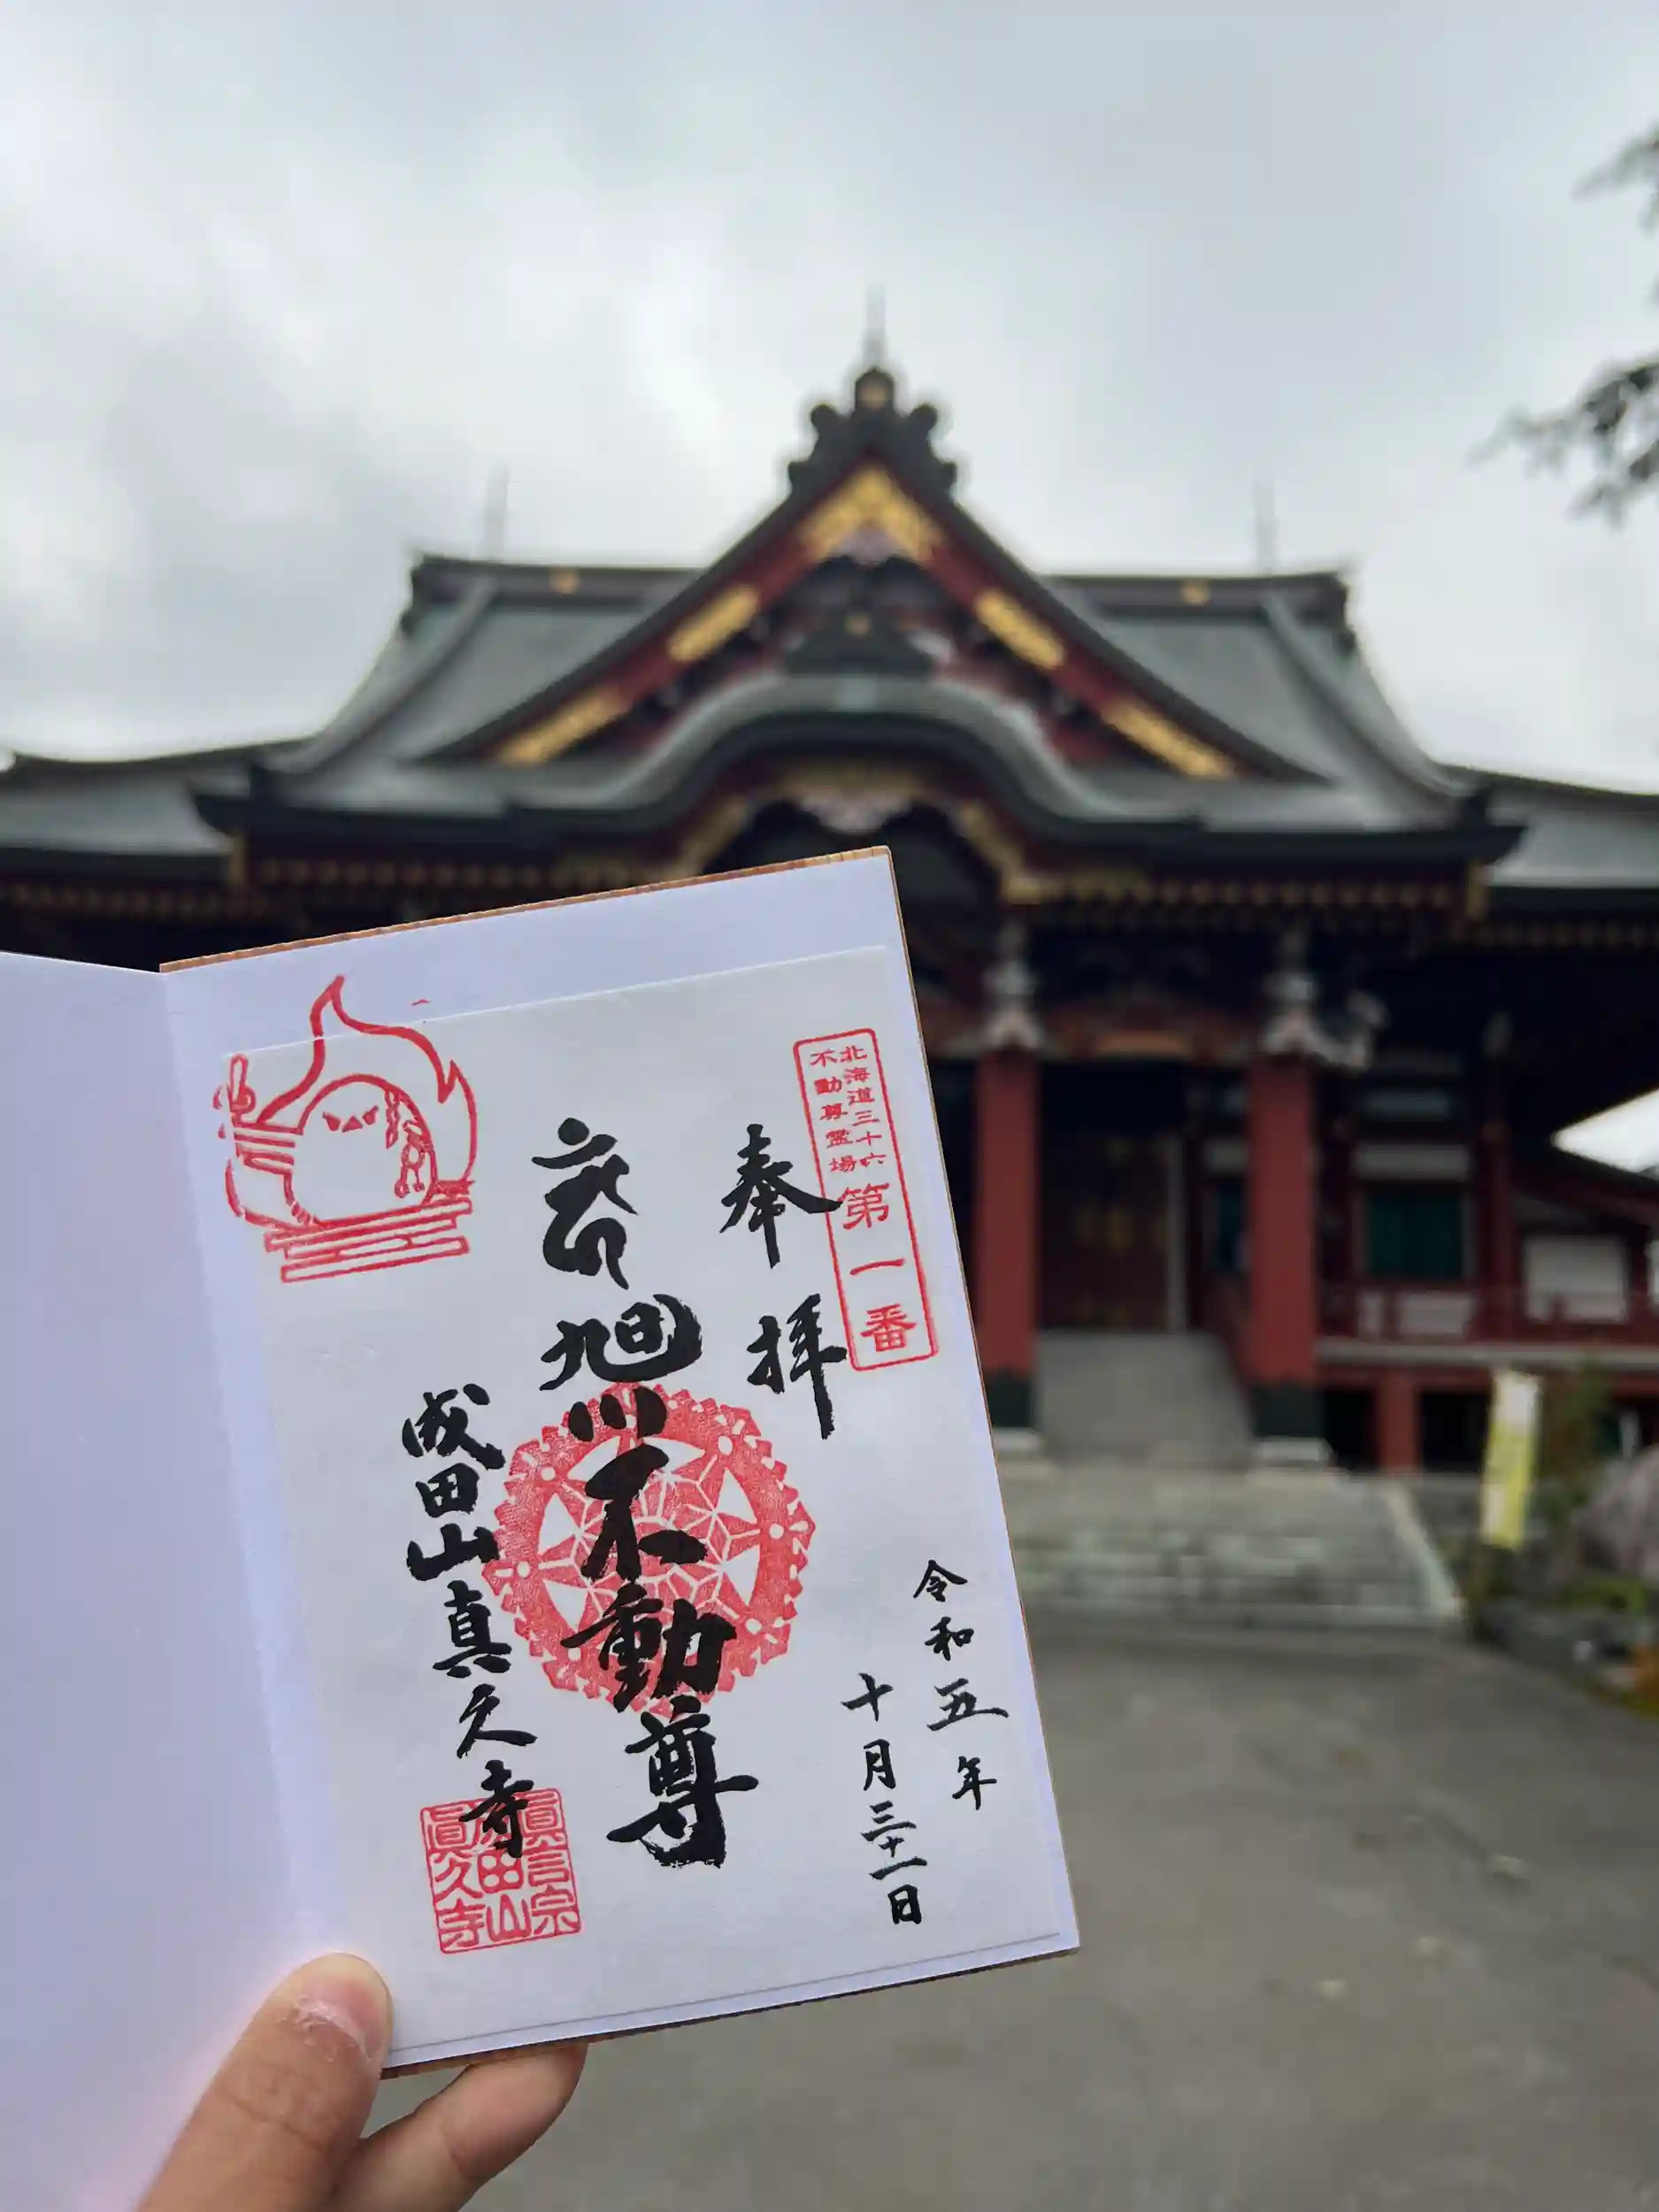 北海道三十六
不動尊霊場
第一番
奉拝
令和五年
十月三十一日
旭川不動尊
成田山真久寺
眞言宗
成田山
眞久寺